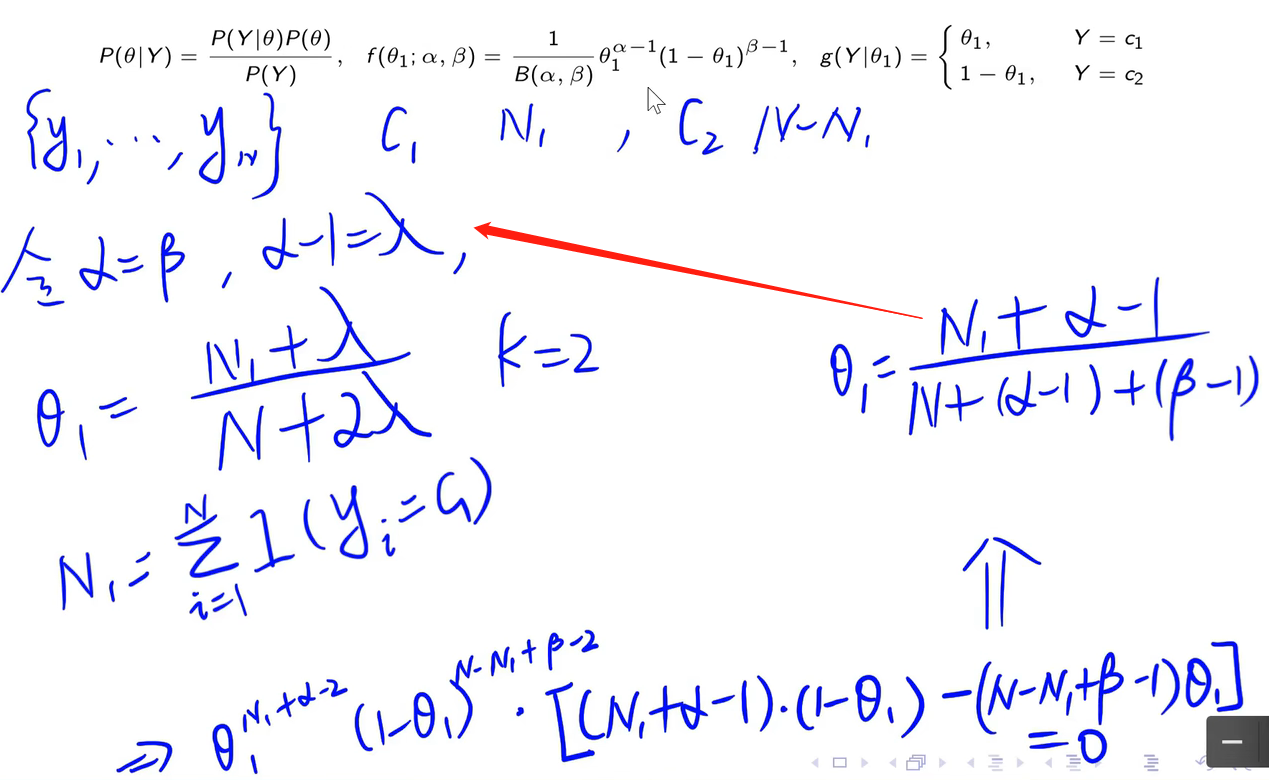 P(θ|Y) = P(Y|θ)P(θ) / P(Y), f(θ₁; α, β) = 1 / B(α, β) θ₁^{α−1}(1 − θ₁)^{β−1}, g(Y|θ₁) = { θ₁, Y = c₁; 1 − θ₁, Y = c₂
{y₁, ···, y_N} C₁ N₁ , C₂ N−N₁
令 α=β , α−1=λ,
θ₁ = (N₁+λ) / (N+2λ) K=2
θ₁ = (N₁+α−1) / (N+(α−1)+(β−1))
N₁ = ∑_{i=1}^{N} 1(y_i=C₁)
⇑
⇒ θ₁^{N₁+α−2} (1−θ₁)^{N−N₁+β−2} · [(N₁+α−1)·(1−θ₁) −(N−N₁+β−1)θ₁] =0